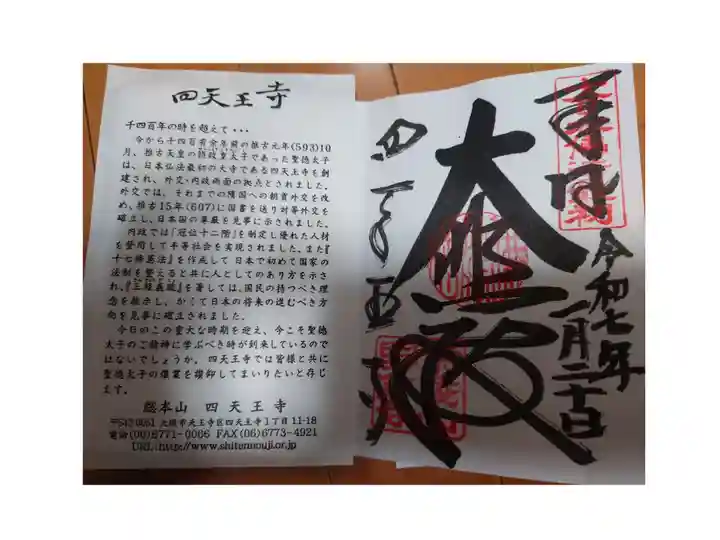 四天王寺
千四百年の時を超えて・・・
今から千四百有余年前の推古元年(593)10
月、推古天皇の摂政皇太子であった聖徳太子
は、日本仏法最初の大寺である四天王寺を創
建され、外交・内政両面の拠点とされました。
外交では、それまでの隣国への朝貢外交を改
め、推古15年(607)に国書を送り対等外交を
確立し、日本国の尊厳を見事に示されました。
内政では『冠位十二階』を制定し優れた人材
を登用して平等社会を実現されました。また『
十七條憲法』を作成して日本で初めて国家の
法制を整えると共に人としてのあり方を示さ
れ、『三経義疏』を著しては、国民の持つべき理
念を啓示し、かくて日本の将来の進むべき方
向を見事に確立されました。
今日のこの重大な時期を迎え、今こそ聖徳
太子のご精神に学ぶべき時が到来しているので
はないでしょうか。四天王寺では皆様と共に
聖徳太子の偉業を讃仰してまいりたいと存じ
ます。
総本山 四天王寺
〒543-0051 大阪市天王寺区四天王寺1丁目11-18
電話(06)6771-0066 FAX(06)6773-4921
URL:http://www.shitennouji.or.jp
奉拝
令和七年
一月二十日
大悲殿
四天王寺